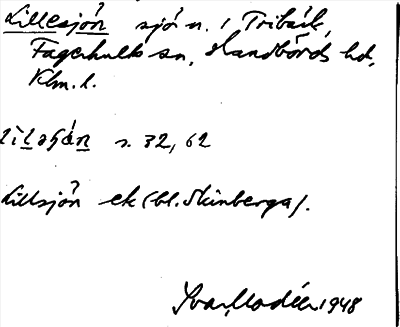 Lillesjön sjö n. / Tribäck,
Fagerhults sn, Handbörds hd,
Klm. l.
lìləʃán s. 32, 62
Lillsjön ek (bl. Skinberga).
Ivar Modéer 1948